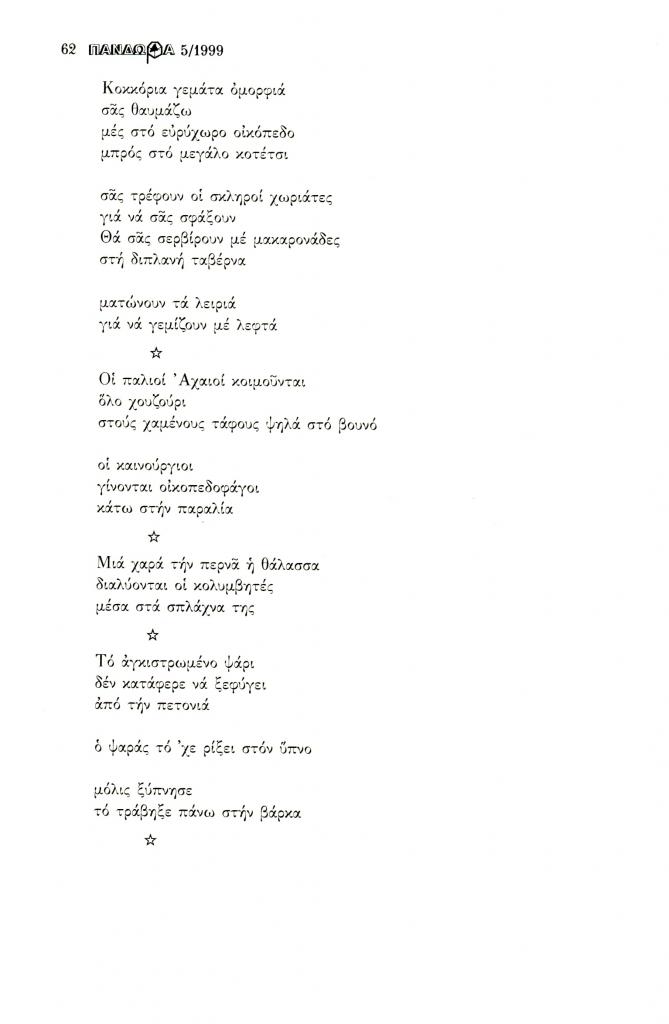 62 ΠΑΝΔΩΡΑ 5/1999
Κοκκόρια γεμάτα ὀμορφιά
σᾶς θαυμάζω
μές στό εὐρύχωρο οἰκόπεδο
μπρός στό μεγάλο κοτέτσι
σᾶς τρέφουν οἱ σκληροί χωριάτες
γιά νά σᾶς σφάξουν
Θά σᾶς σερβίρουν μέ μακαρονάδες
στή διπλανή ταβέρνα
ματώνουν τά λειριά
γιά νά γεμίζουν μέ λεφτά
☆
Οἱ παλιοί Ἀχαιοί κοιμοῦνται
ὅλο χουζούρι
στούς χαμένους τάφους ψηλά στό βουνό
οἱ καινούργιοι
γίνονται οἰκοπεδοφάγοι
κάτω στήν παραλία
☆
Μιά χαρά τήν περνᾶ ἡ θάλασσα
διαλύονται οἱ κολυμβητές
μέσα στά σπλάχνα της
☆
Τό ἀγκιστρωμένο ψάρι
δέν κατάφερε νά ξεφύγει
ἀπό τήν πετονιά
ὁ ψαράς τό ᾿χε ρίξει στόν ὕπνο
μόλις ξύπνησε
τό τράβηξε πάνω στήν βάρκα
☆